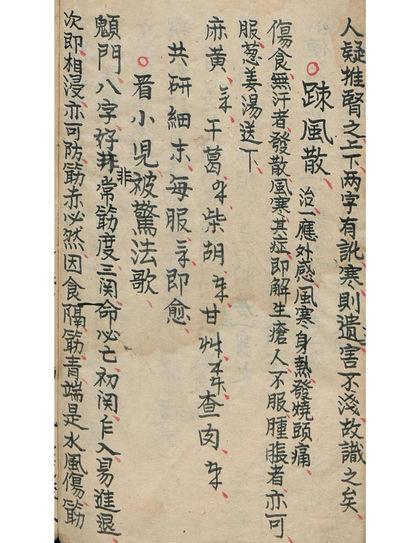 人疑推腎之上下两字有訛寒則遺害不淺故識之矣
踈風散 治一應外感風寒身熱發燒頭痛
傷食無汗者發散風寒其症即解生瘡人不服腫脹者亦可
服葱姜湯送下
麻黄 干葛 柴胡 甘艸 查肉
共研細末每服 即愈
看小児被驚法歌
顖門八字好非常筋度三関命必亡初関乍入易進退
次即相浸亦可防筋赤必然因食隔筋青端是水風傷筋